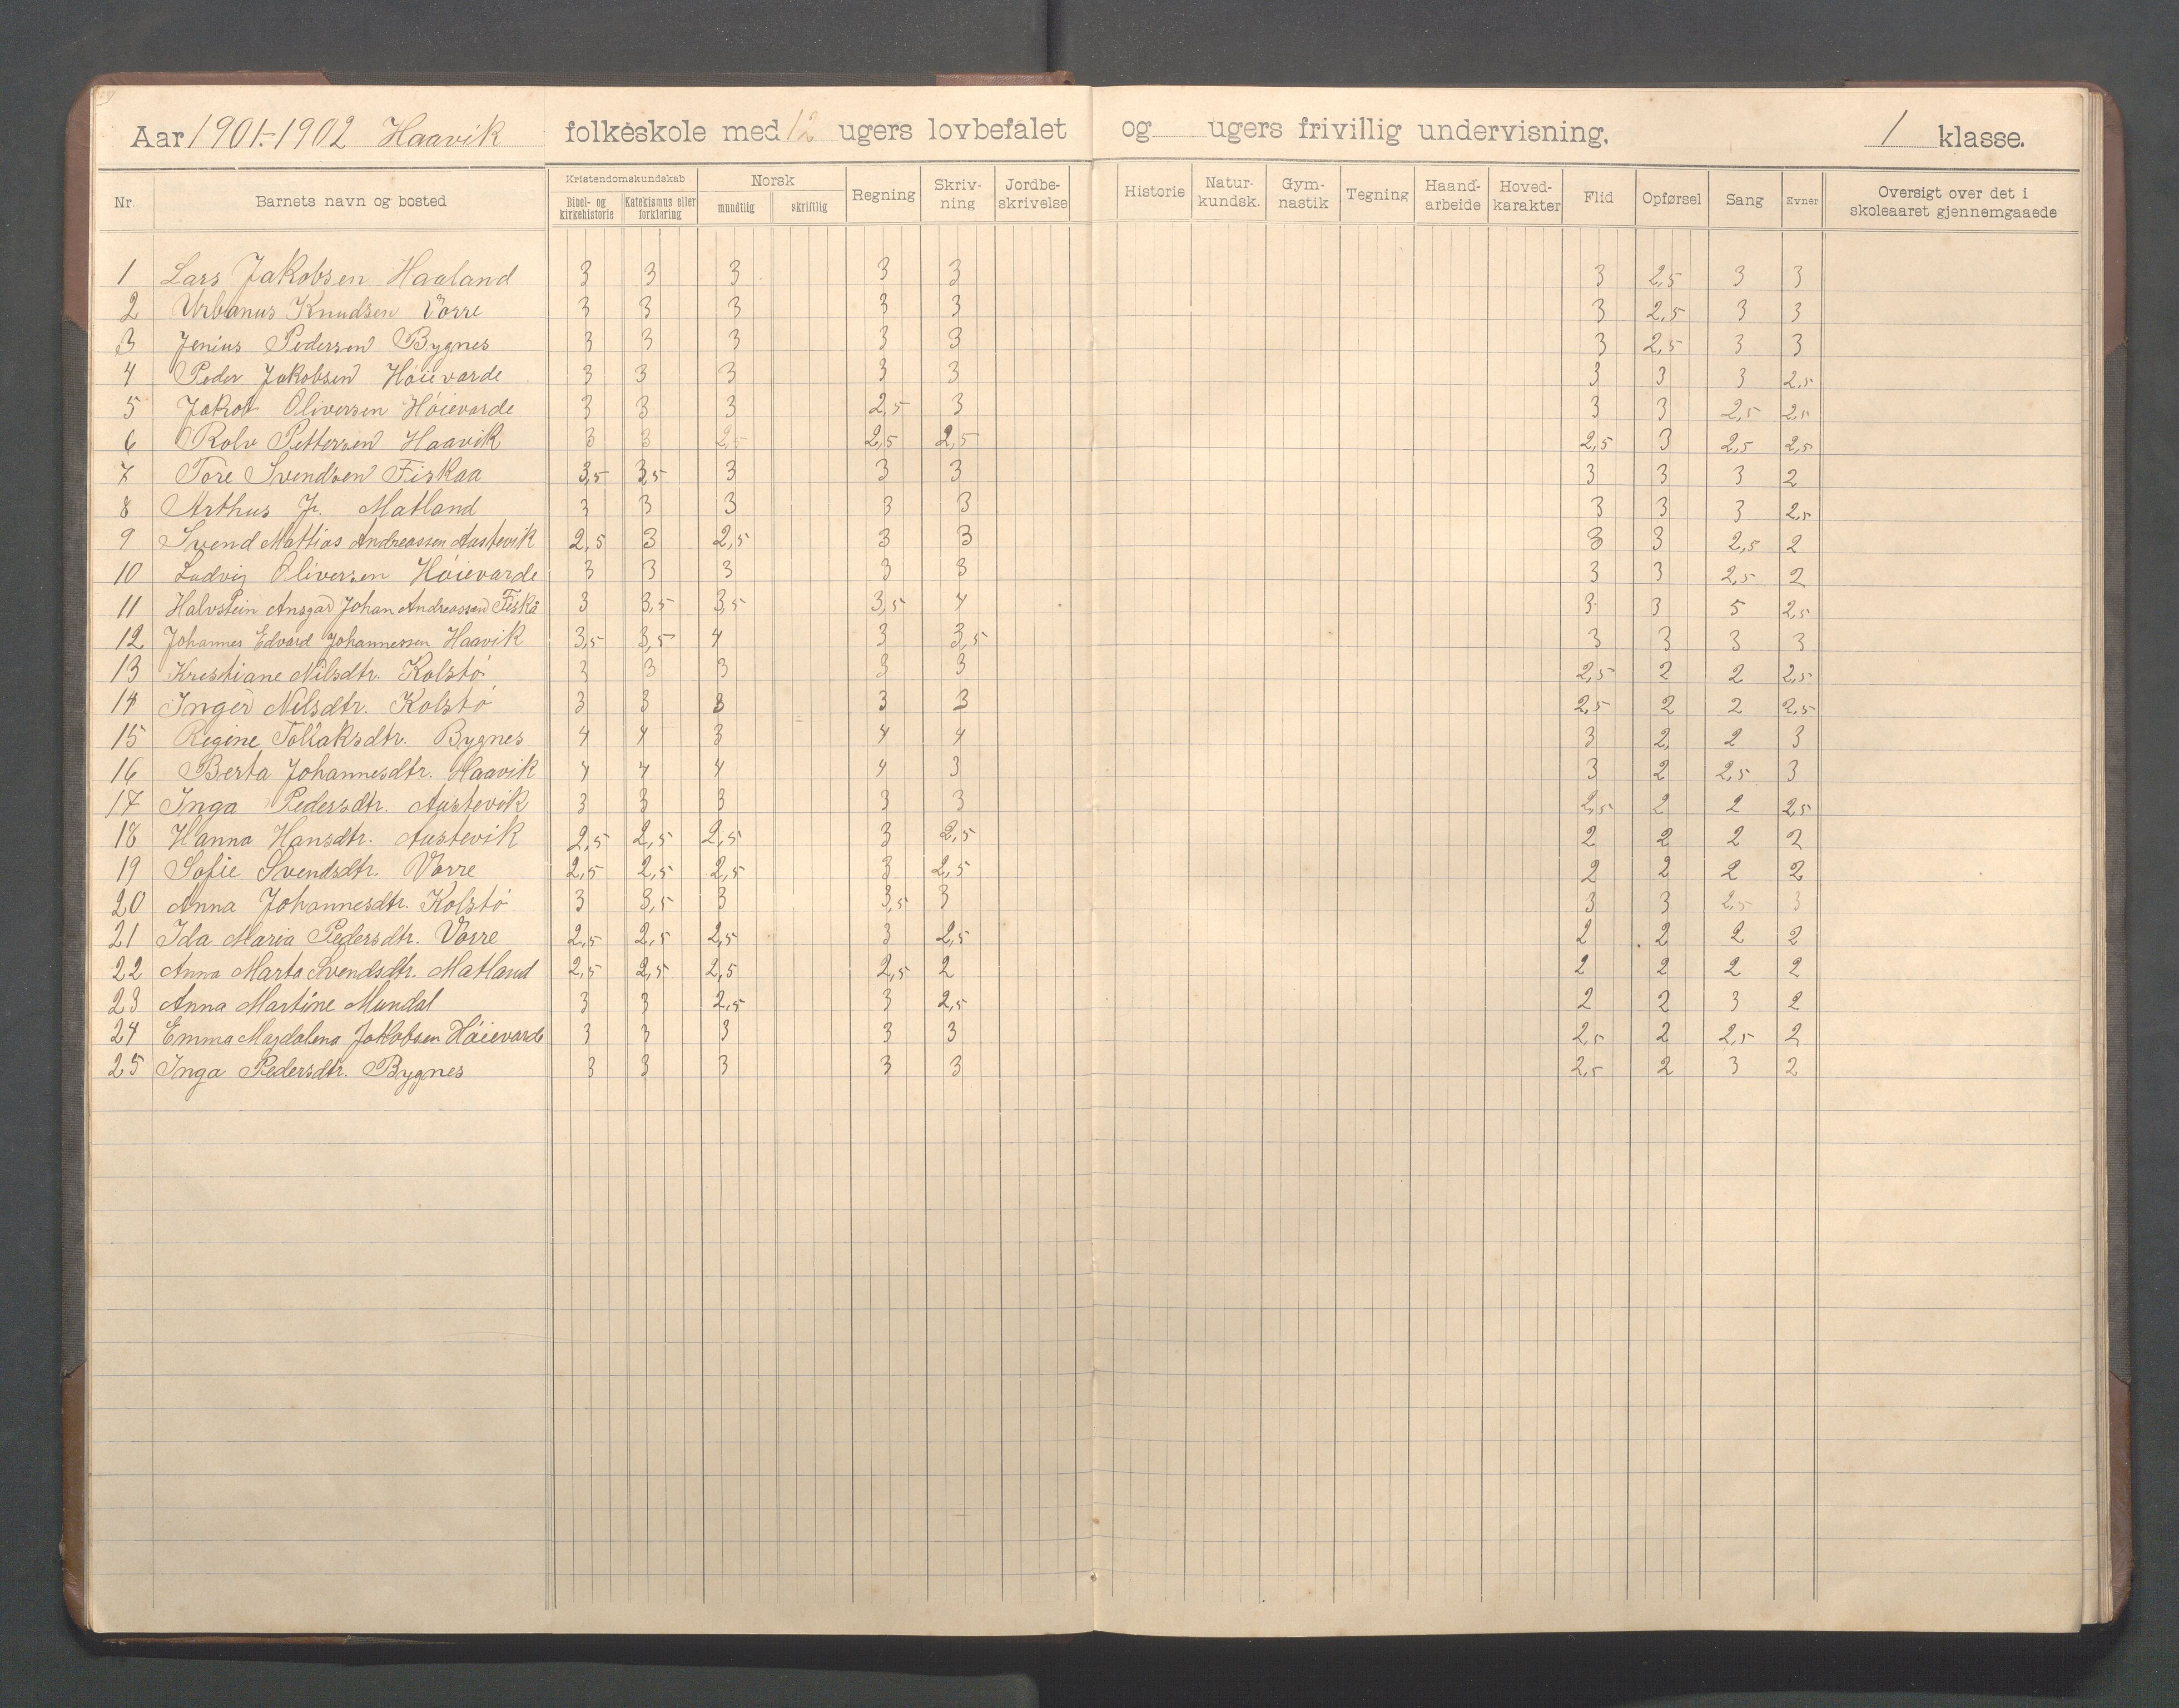 Aar 1901-1902 Haavik folkeskole med 12 ugers lovbefalet og ugers frivillig undervisning, 1 klasse.
Nr. Barnets navn og bosted Kristendomskundskab Bibel- og kirkehistorie Katekismus eller forklaring Norsk mundtlig skriftlig Regning Skriv-ning Jordbe-skrivelse Historie Natur-kundsk. Gym-nastik Tegning Haand-arbeide Hoved-karakter Flid Opførsel Sang Evner Oversigt over det i skoleaaret gjennemgaaede
1 Lars Jakobsen Haaland 3 3 3 3 3 3 2,5 3 3
2 Urbanus Knudsen Vorre 3 3 3 3 3 3 2,5 3 3
3 Jenius Pedersen Bygnes 3 3 3 3 3 3 2,5 3 3
4 Peder Jakobsen Høievarde 3 3 3 3 3 3 3 3 2,5
5 Jakob Oliversen Høievarde 3 3 3 2,5 3 3 3 2,5 2,5
6 Rolv Pettersen Haavik 3 3 2,5 2,5 2,5 2,5 3 2,5 2,5
7 Tore Svendsen Fiskaa 3,5 3,5 3 3 3 3 3 3 2
8 Arthus Jr. Matland 3 3 3 3 3 3 3 3 2,5
9 Svend Mattias Andreassen Austevik 2,5 3 2,5 3 3 3 3 2,5 2
10 Ludvig Oliversen Høievarde 3 3 3 3 3 3 3 2,5 2
11 Halvstein Ansgar Johan Andreassen Fiskå 3 3,5 3,5 3,5 4 3 3 5 2,5
12 Johannes Edvard Johannessen Haavik 3,5 3,5 4 3 3,5 3 3 3 3
13 Kristiane Nilsdtr. Kolstø 3 3 3 3 3 2,5 2 2 2,5
14 Inger Nilsdtr. Kolstø 3 3 3 3 3 2,5 2 2 2,5
15 Regine Tollaksdtr. Bygnes 4 4 3 4 4 3 2 2 3
16 Berta Johannesdtr. Haavik 4 4 4 4 3 3 2 2,5 3
17 Inga Pedersdtr. Austevik 3 3 3 3 3 2,5 2 2 2,5
18 Hanna Hansdtr. Austevik 2,5 2,5 2,5 3 2,5 2 2 2 2
19 Sofie Svendsdtr. Vorre 2,5 2,5 2,5 3 2,5 2 2 2 2
20 Anna Johannesdtr. Kolstø 3 3,5 3 3,5 3 3 3 2,5 3
21 Ida Maria Pedersdtr. Vorre 2,5 2,5 2,5 3 2,5 2 2 2 2
22 Anna Marta Svendsdtr. Matland 2,5 2,5 2,5 2,5 2 2 2 2 2
23 Anna Martine Mundal 3 3 2,5 3 2,5 2 2 3 2
24 Emma Magdalena Jakobsen Høievarde 3 3 3 3 3 2,5 2 2,5 2
25 Inga Pedersdtr. Bygnes 3 3 3 3 3 2,5 2 3 2